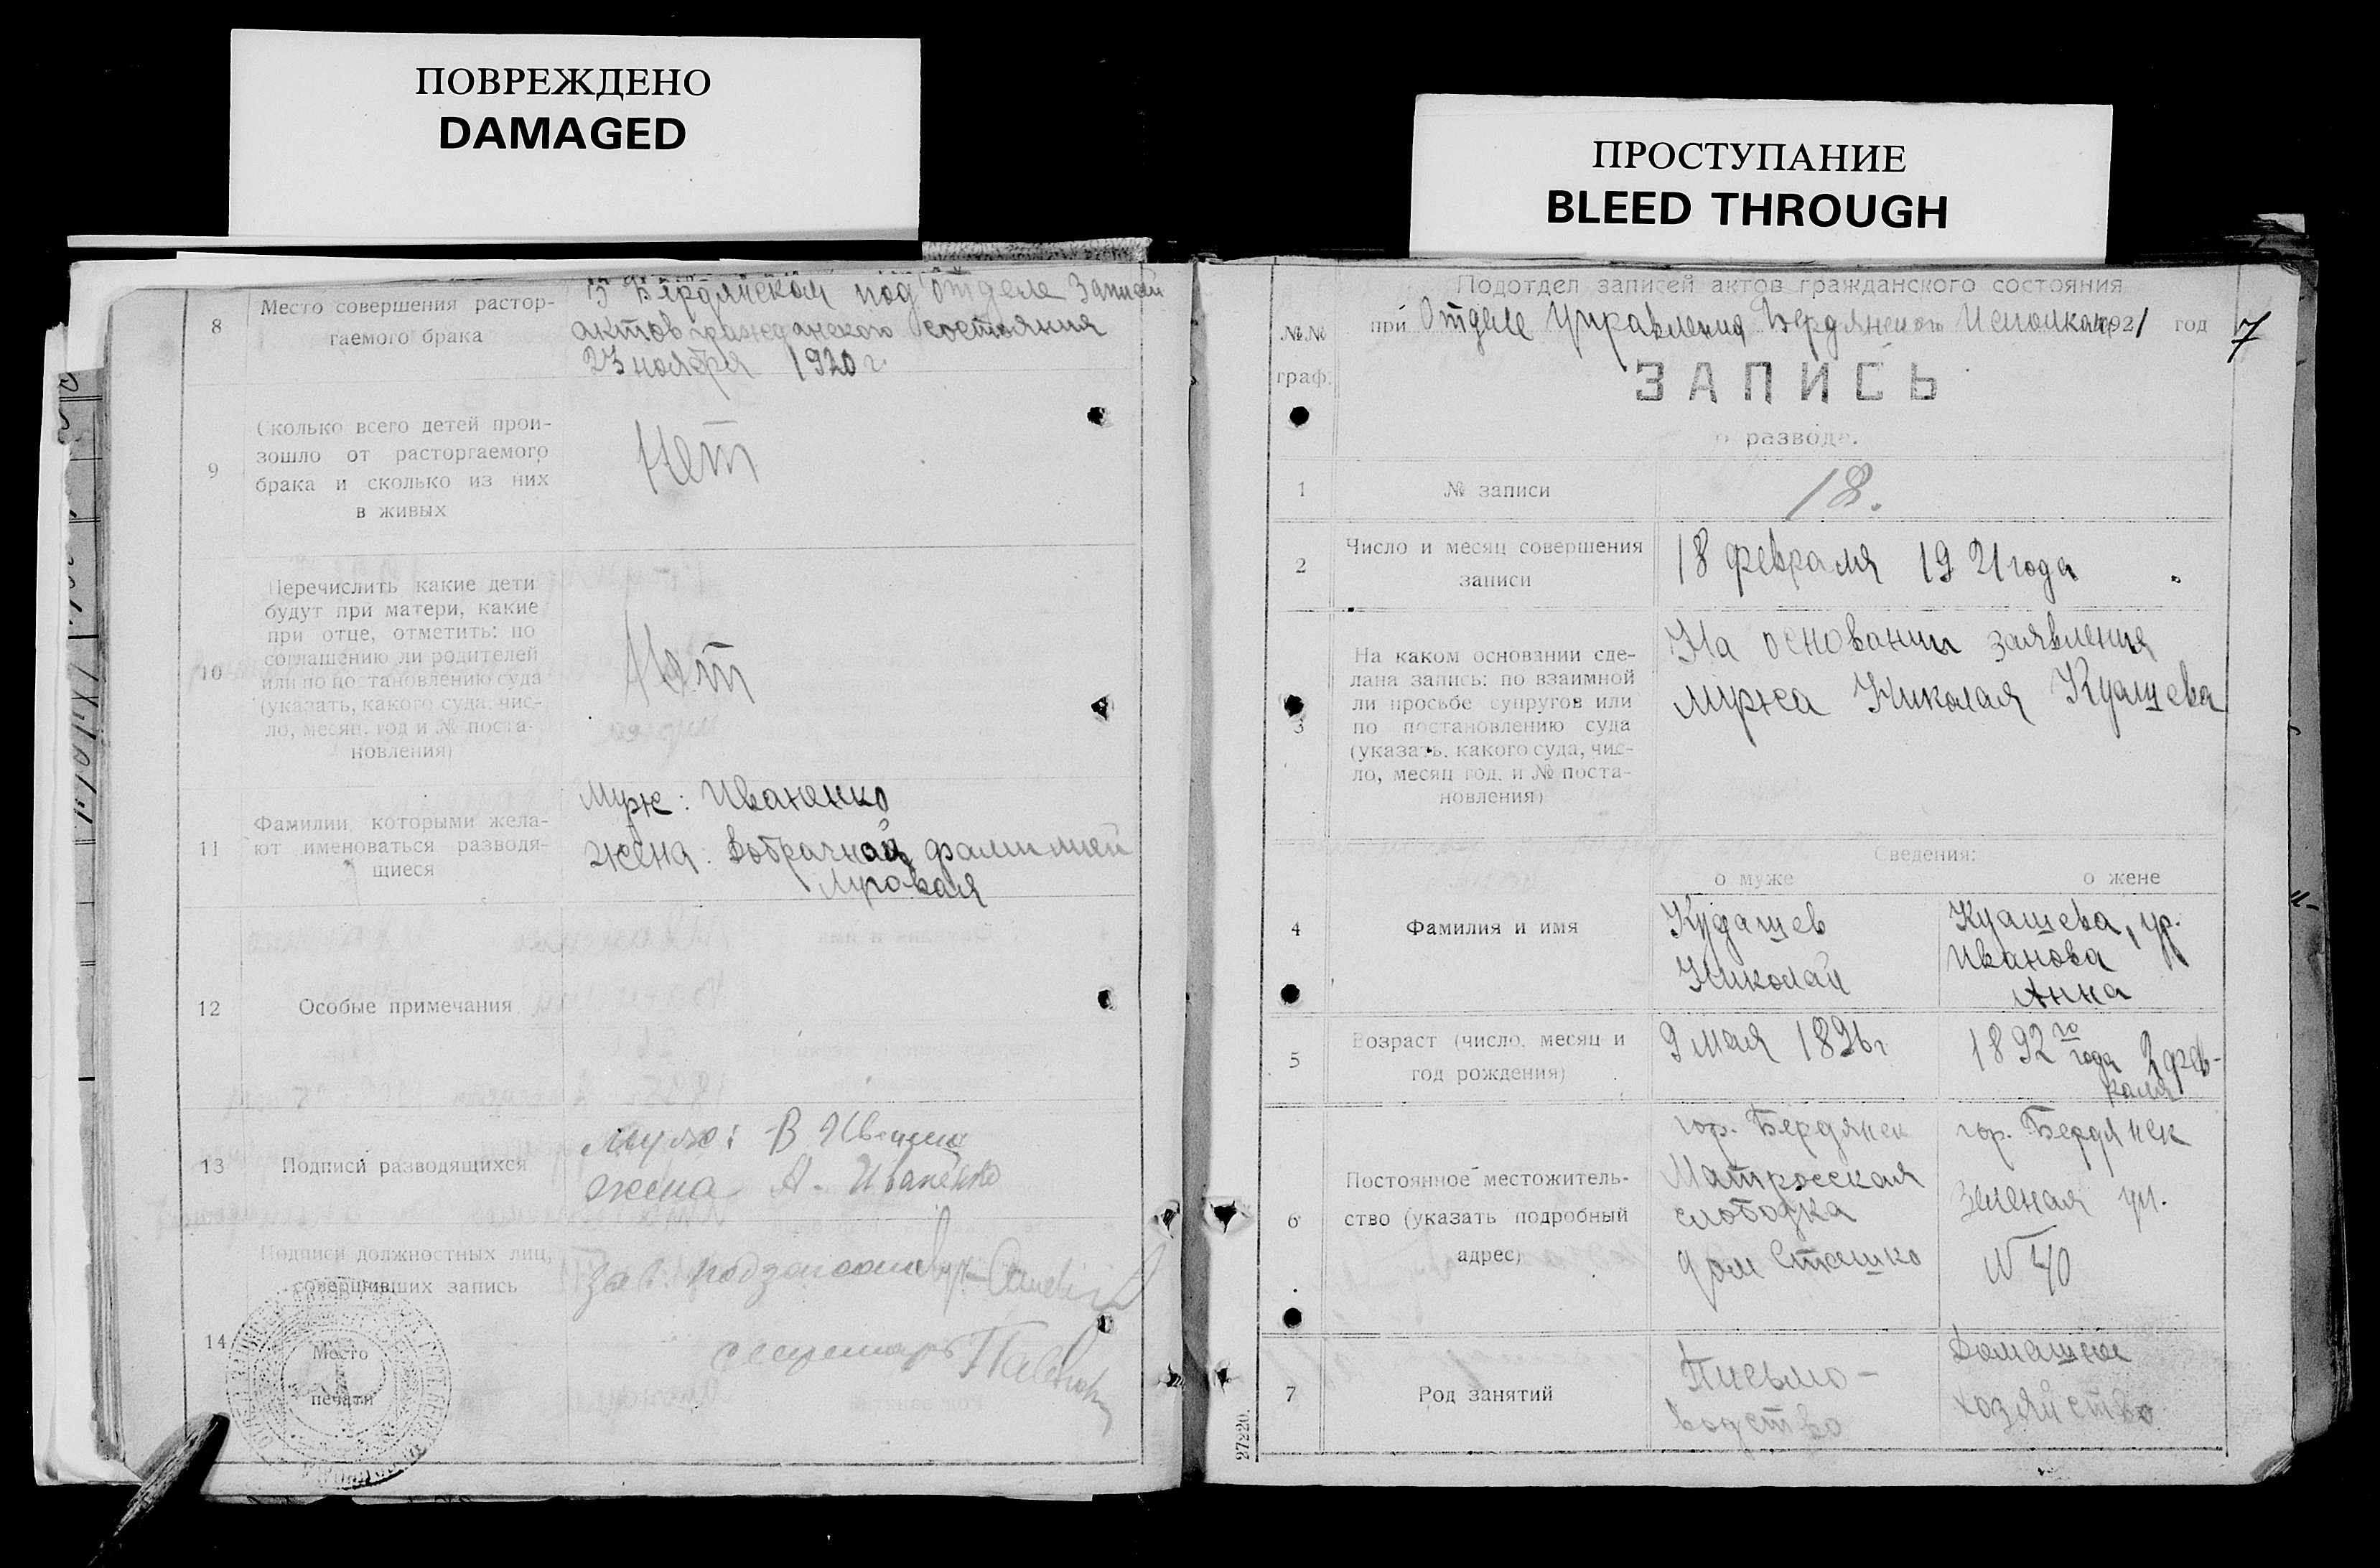 ПОВРЕЖДЕНО
DAMAGED
8
Место совершения растор-
гаемого брака
В Бердянском под'отделе Записей
актов гражданского состояния
23 ноября 1920 г.
9
Сколько всего детей прои-
зошло от расторгаемого
брака и сколько из них
в живых
Нет
10
Перечислить какие дети
будут при матери, какие
при отце, отметить: по
соглашению ли родителей
или по постановлению суда
(указать, какого суда, чис-
ло, месяц, год и № поста-
новления)
Нет
11
Фамилии, которыми жела-
ют именоваться разводя-
щиеся
Муж: Иваненко
жена: добрачной фамилией
12
Особые примечания
13
Подписи разводящихся
муж: В
жена А. Иваненко
14
Подписи должностных лиц,
совершивших запись
Место
печати
Зав.
секретарь
ПРОСТУПАНИЕ
BLEED THROUGH
Подотдел записей актов гражданского состояния
№№
граф.
при Отделе Управления Бердянского Исполкома 1921 год
7
ЗАПИСЬ
о разводе.
1
№ записи
18.
2
Число и месяц совершения
записи
18 февраля 1921 года
3
На каком основании сде-
лана запись: по взаимной
ли просьбе супругов или
по постановлению суда
(указать, какого суда, чис-
ло, месяц год, и № поста-
новления)
На основании заявления
мужа Николая Куашева
Сведения:
о муже
о жене
4
Фамилия и имя
Кудашев
Николай
Куашева, ур.
Иванова
Анна
5
Возраст (число, месяц и
год рождения)
9 мая 1896 г
1892 го года 2 фев-
раля
6
Постоянное местожитель-
ство (указать подробный
адрес)
гор. Бердянск
Матросская
слободка
дом Сташко
гор. Бердянск
Зеленая ул.
N 40
7
Род занятий
Письмо-
водство
Домашнее
хозяйство
27220.